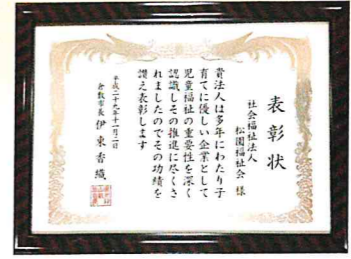 表彰状
社会福祉法人
松園福祉会 様
貴法人は多年にわたり子
育てに優しい企業として
児童福祉の重要性を深く
認識しその推進に尽くさ
れましたのでその功績を
讃え表彰します
平成二十九年十一月二日
倉敷市長 伊東香織